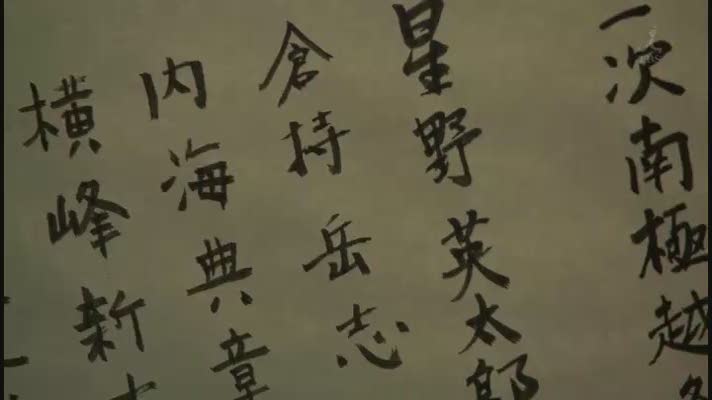 一次南極越冬
星野英太郎
倉持岳志
内海典章
横峰新吉